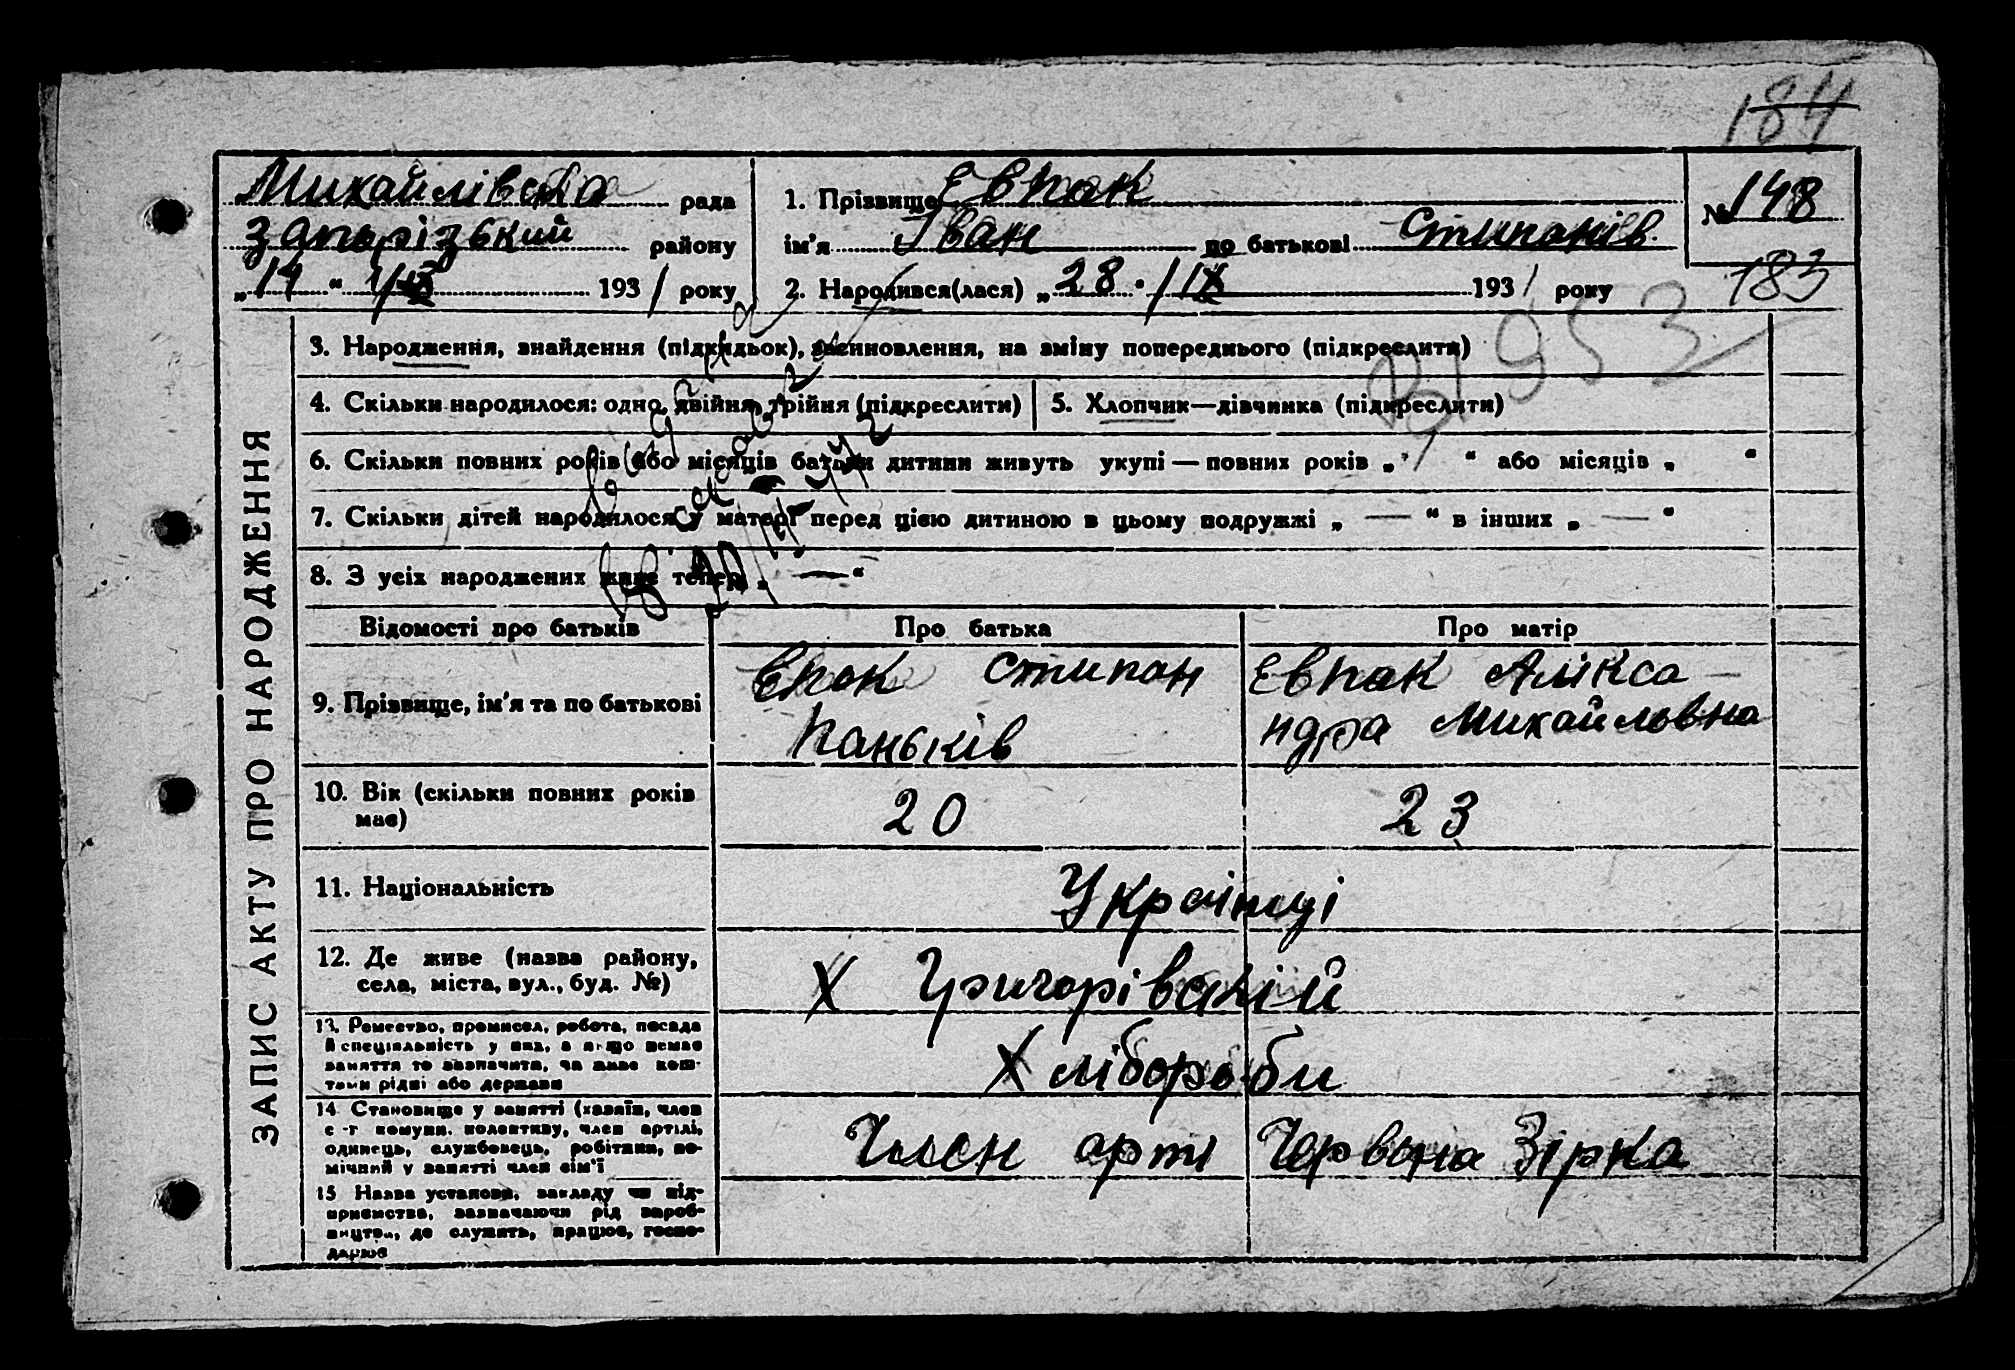 184
Михайлівська рада
Запорізький району
„14“ 1931 року
1. Прізвище Евпак
ім'я Іван по батькові Стипанів
2. Народився(лася) „28“ /ІХ 1931 року
№ 148
183
ЗАПИС АКТУ ПРО НАРОДЖЕННЯ
3. Народження, знайдення (підкидьок), всиновлення, на зміну попереднього (підкреслити)
953
4. Скільки народилося: одно, двійня, трійня (підкреслити)
5. Хлопчик—дівчинка (підкреслити)
6. Скільки повних років або місяців батьки дитини живуть укупі — повних років „1“ або місяців „ “
7. Скільки дітей народилося у матері перед цією дитиною в цьому подружжі „ — “ в інших „ — “
8. З усіх народжених живе тепер „ — “
Відомості про батьків Про батька Про матір
9. Прізвище, ім'я та по батькові
Епак Стипан
Паньків
Евпак Алікса-
ндра Михайлівна
10. Вік (скільки повних років
має)
20 23
11. Національність
Українці
12. Де живе (назва району,
села, міста, вул., буд. №)
Х Григорівский
13. Ремество, промисел, робота, посада
й спеціяльність у них, а якщо немає
заняття то зазначити, чи живе кош-
тами рідні або держави
Хлібороби
14 Становище у занятті (хазяїн, член
с.-г комуни, колективу, член артілі,
одинець, службовець, робітник, по-
мічний у занятті член сім'ї
Член арті Червона Зірка
15 Назва установи, закладу чи під-
приємства, зазначаючи рід вироб-
ництва, де служить, працює, госпо-
дарює